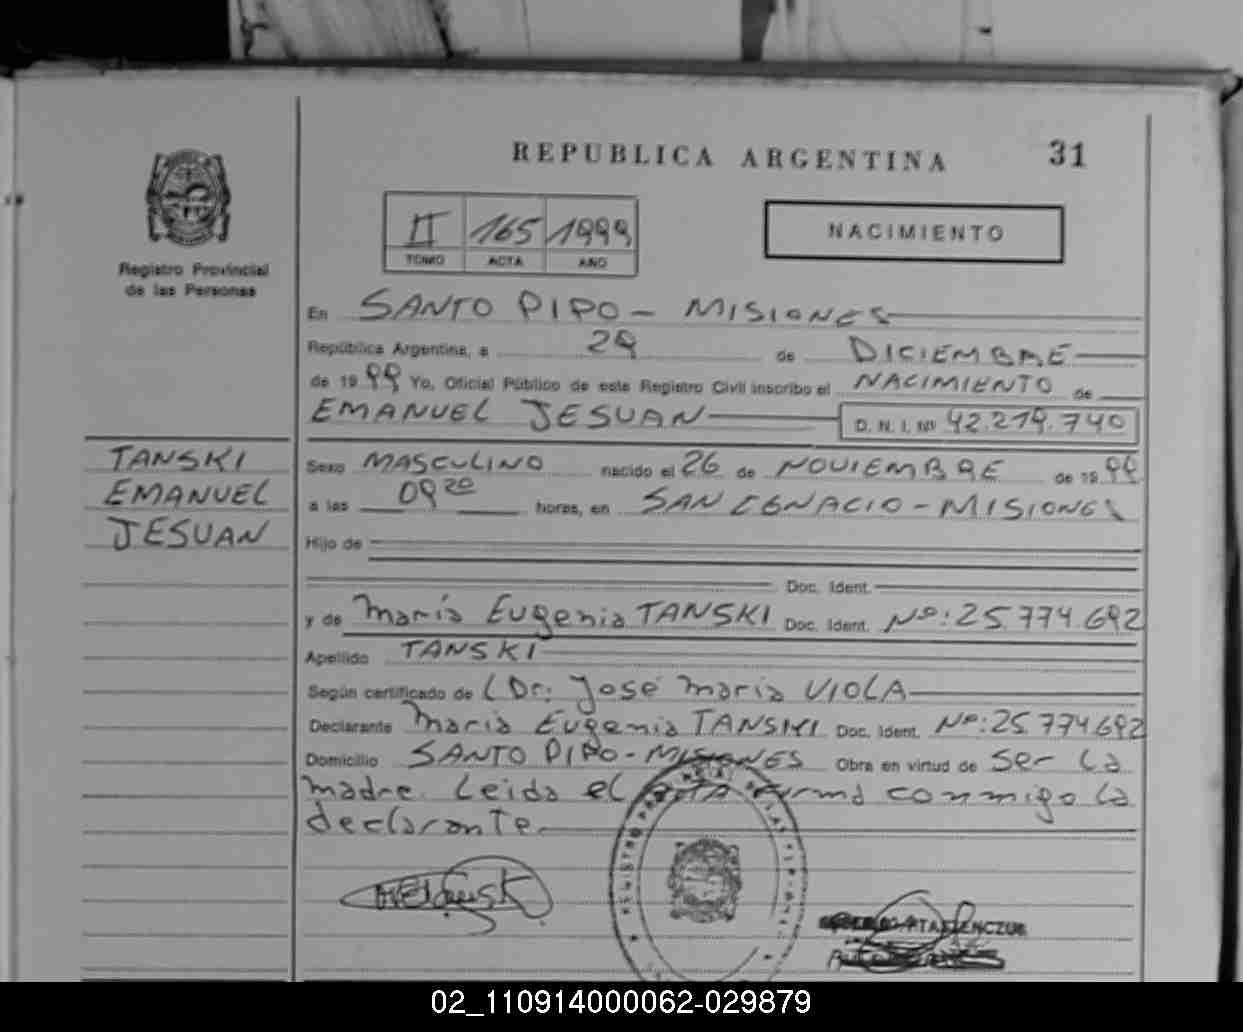 REPUBLICA ARGENTINA 31
Registro Provincial
de las Personas
II 165 1999
TOMO ACTA AÑO
NACIMIENTO
En SANTO PIPO - MISIONES
República Argentina, a 29 de DICIEMBRE
de 1999 Yo, Oficial Público de este Registro Civil inscribo el NACIMIENTO de
EMANUEL JESUAN D. N. I. Nº 42.219.740
TANSKI
EMANUEL
JESUAN
Sexo MASCULINO nacido el 26 de NOVIEMBRE de 1999
a las 09 20 horas, en SAN IGNACIO - MISIONES
Hijo de
Doc. Ident.
y de María Eugenia TANSKI Doc. Ident. Nº: 25.774.692
Apellido TANSKI
Según certificado de (Dr: José María VIOLA
Declarante María Eugenia TANSKI Doc. Ident. Nº: 25.774.692
Domicilio SANTO PIPO - MISIONES Obra en virtud de ser la
madre. Leida el ACTA firma conmigo la
declarante.
REGISTRO PROVINCIAL DE LAS
02_110914000062-029879